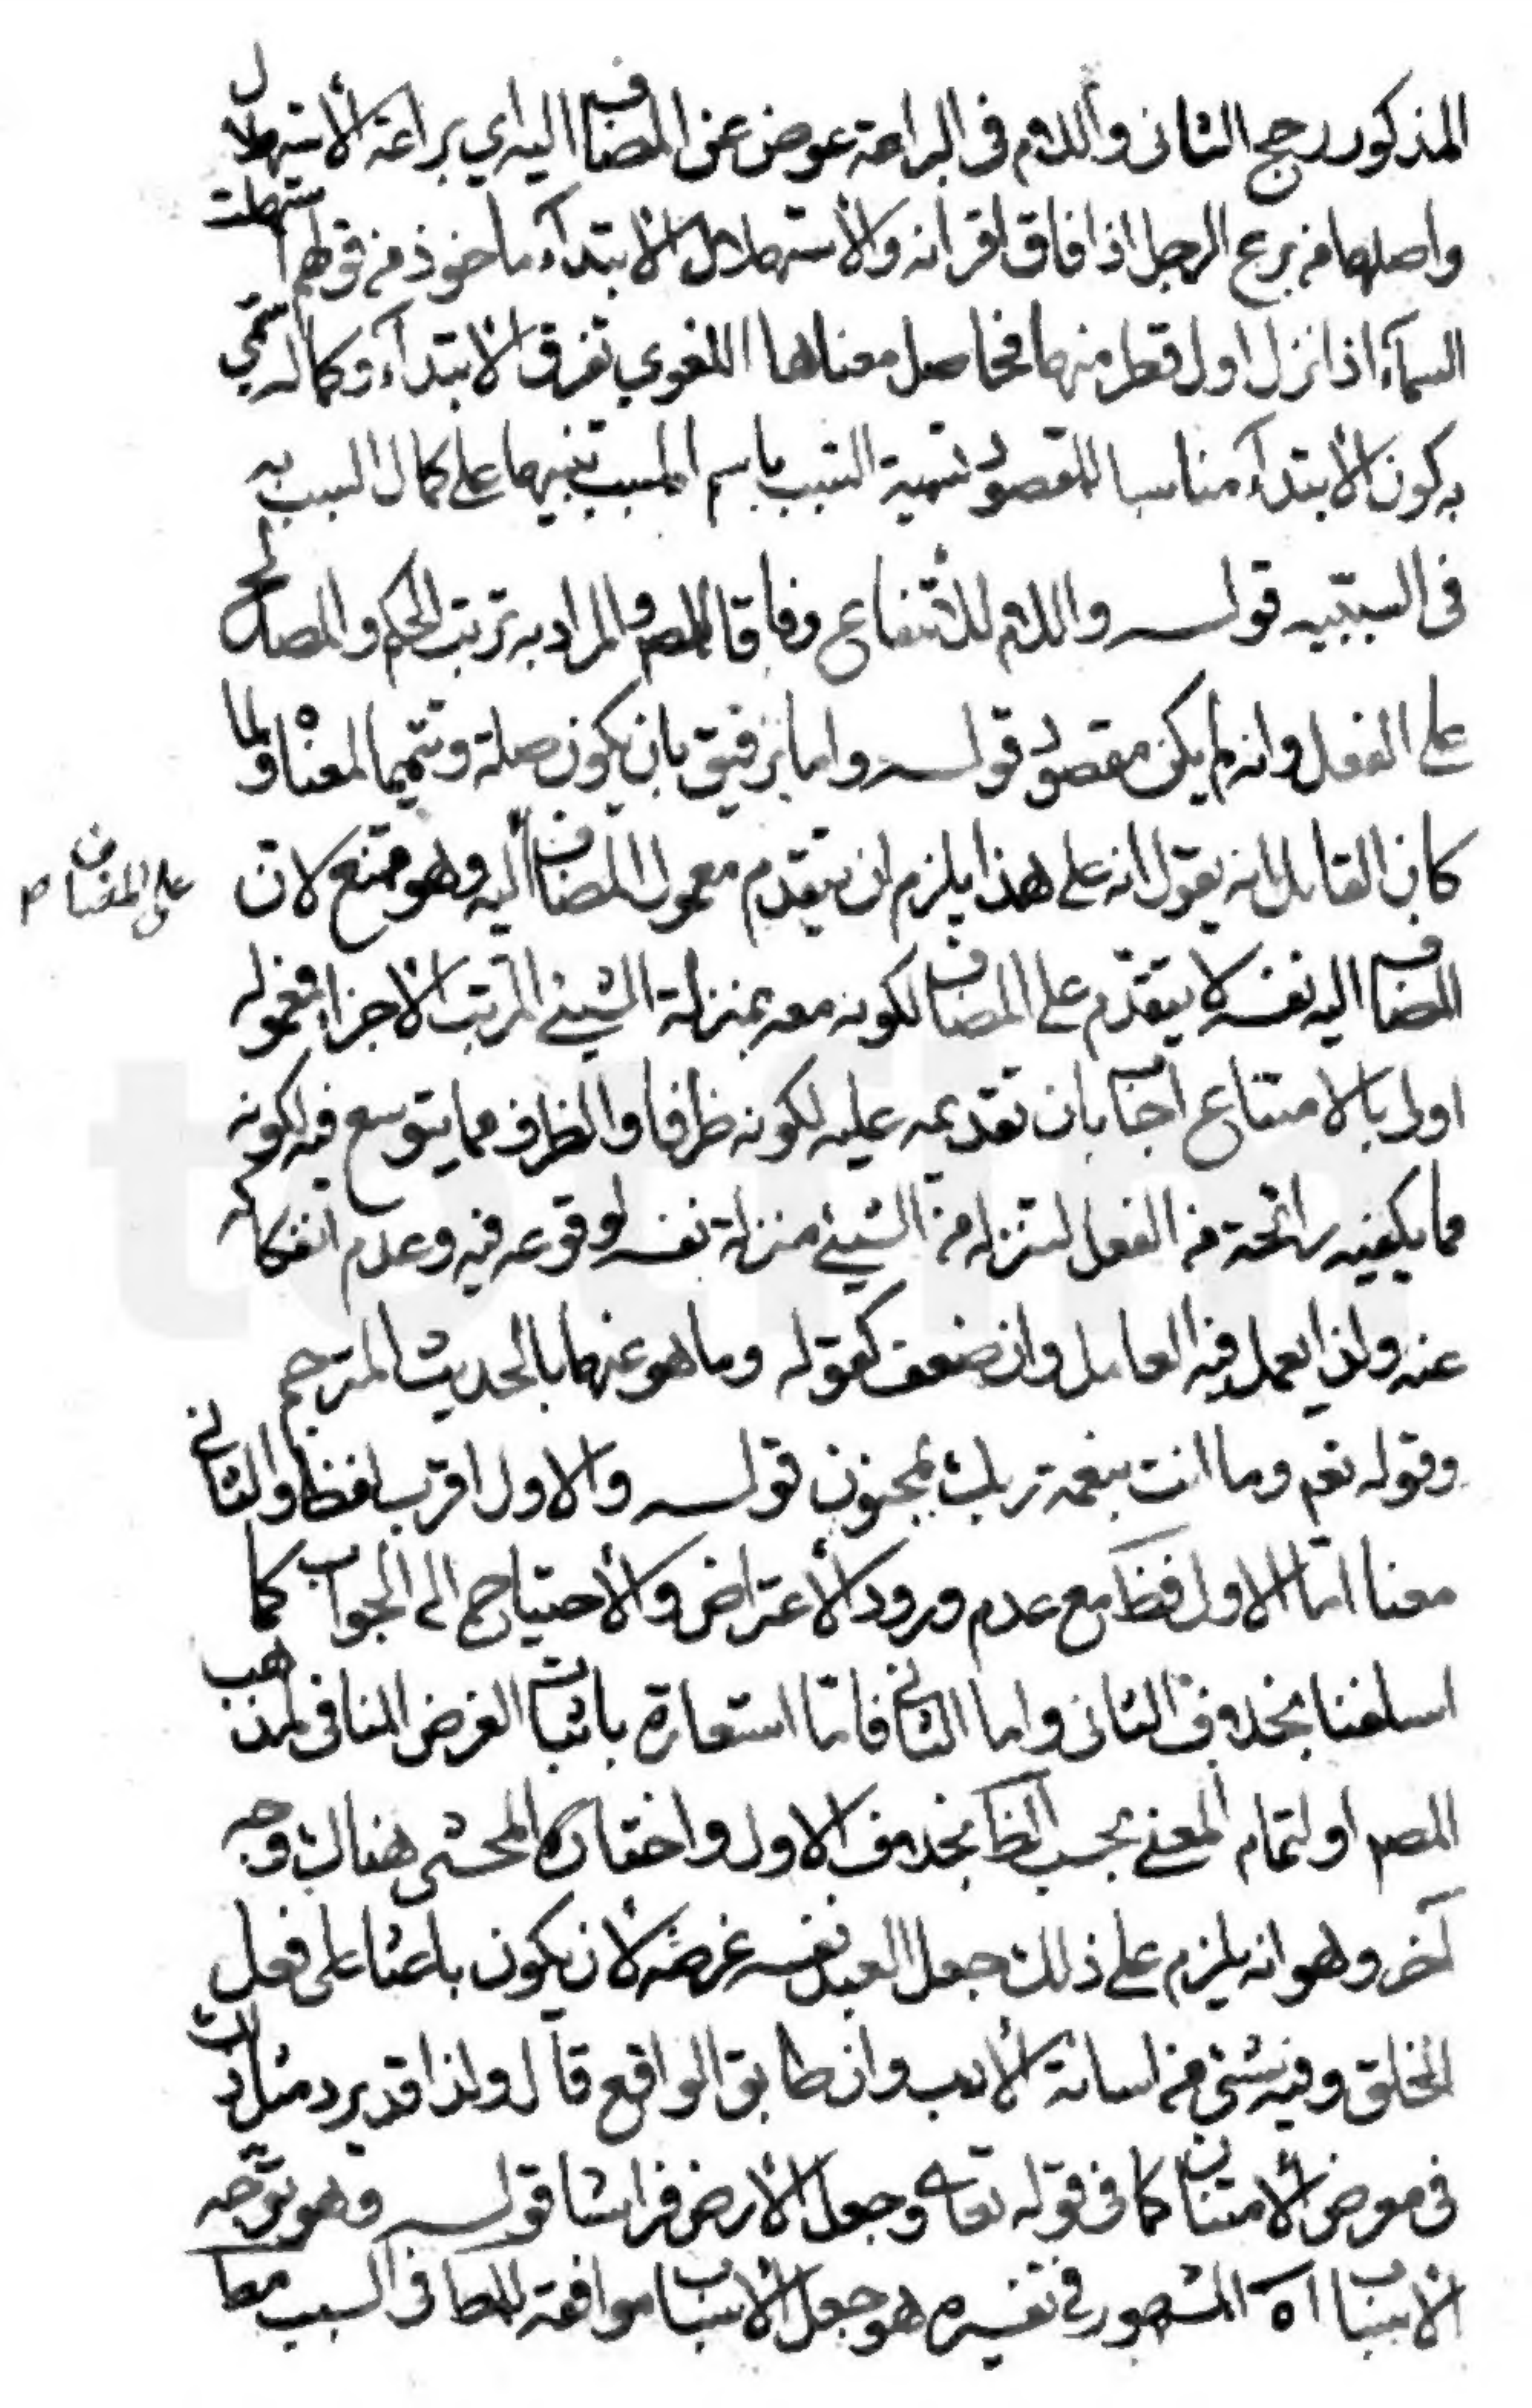 المذكور رجح الثانى واللام فى البراعة عوض عن المضاف اليه اي براعة الأستهلال
واصلها من برع الرجل اذا فاق اقرانه والأستهلال الأبتدآء ماخوذ من قولهم استهلت
السمآء اذا نزل اول قطر منها فحاصل معناها اللغوي تفوق الابتدآء وكماله سمي
به كون الأبتدآء مناسبا للمقصود تسمية السبب باسم المسبب تنبيها على كمال السبب به
فى السببيه قوله واللام للأنتفاع وفاقا للمص والمراد به ترتب الحكم والمصالح
على الفعل وان لم يكن مقصود قوله واما برفيق بان يكون صلة وتتميما لمعناه ولما
كان القايل ان يقول انه على هذا يلزم ان يتقدم معمول المضاف اليه وهو ممتنع لان
على المضاف م
المضاف اليه نفسه لا يتقدّم على المضاف لكونه معه بمنزلة الشيئ المرتب الأجزاء فمعموله
اولى بالامتناع اجاب بان تقديمه عليه لكونه ظرفا والظرف مما يتوسع فيه لكونه
مما يكفيه رائحة من الفعل لتنزله من الشيئ منزلة نفسه لوقوعه فيه وعدم انفكاكه
عنه ولذا يعمل فيه العامل وان ضعف كقوله وما هو عنها بالحديث المترجم
وقوله تعم وما انت بنعمة ربك بمجنون قوله والاول اقرب لفظا والثانى
معنا اما الاول لفظا مع عدم ورود الأعتراض والأحتياج الى الجواب كما
اسلفنا بخلاف الثانى واما الثانى فاما استعارة باثبات الغرض المنافى لمذهب
المص او لتمام المعنى بحسب الظ بخلاف الاول واختاره المحشى هناك وجه
آخر وهو انه يلزم على ذلك جعل العبد نفسه غرضه لأن يكون باعثا على فعل
الخلق وفيه شئ من اسائة الأدب وان طابق الواقع قال ولذا قد يرد مثل ذلك
فى معرض الأمتنان كما فى قوله تعالى وجعل الأرض فراشا قوله وهو توجه
الأسباب اه المشهور فى تفسيره هو جعل الأسباب موافقة للمطا فى السبب مطا